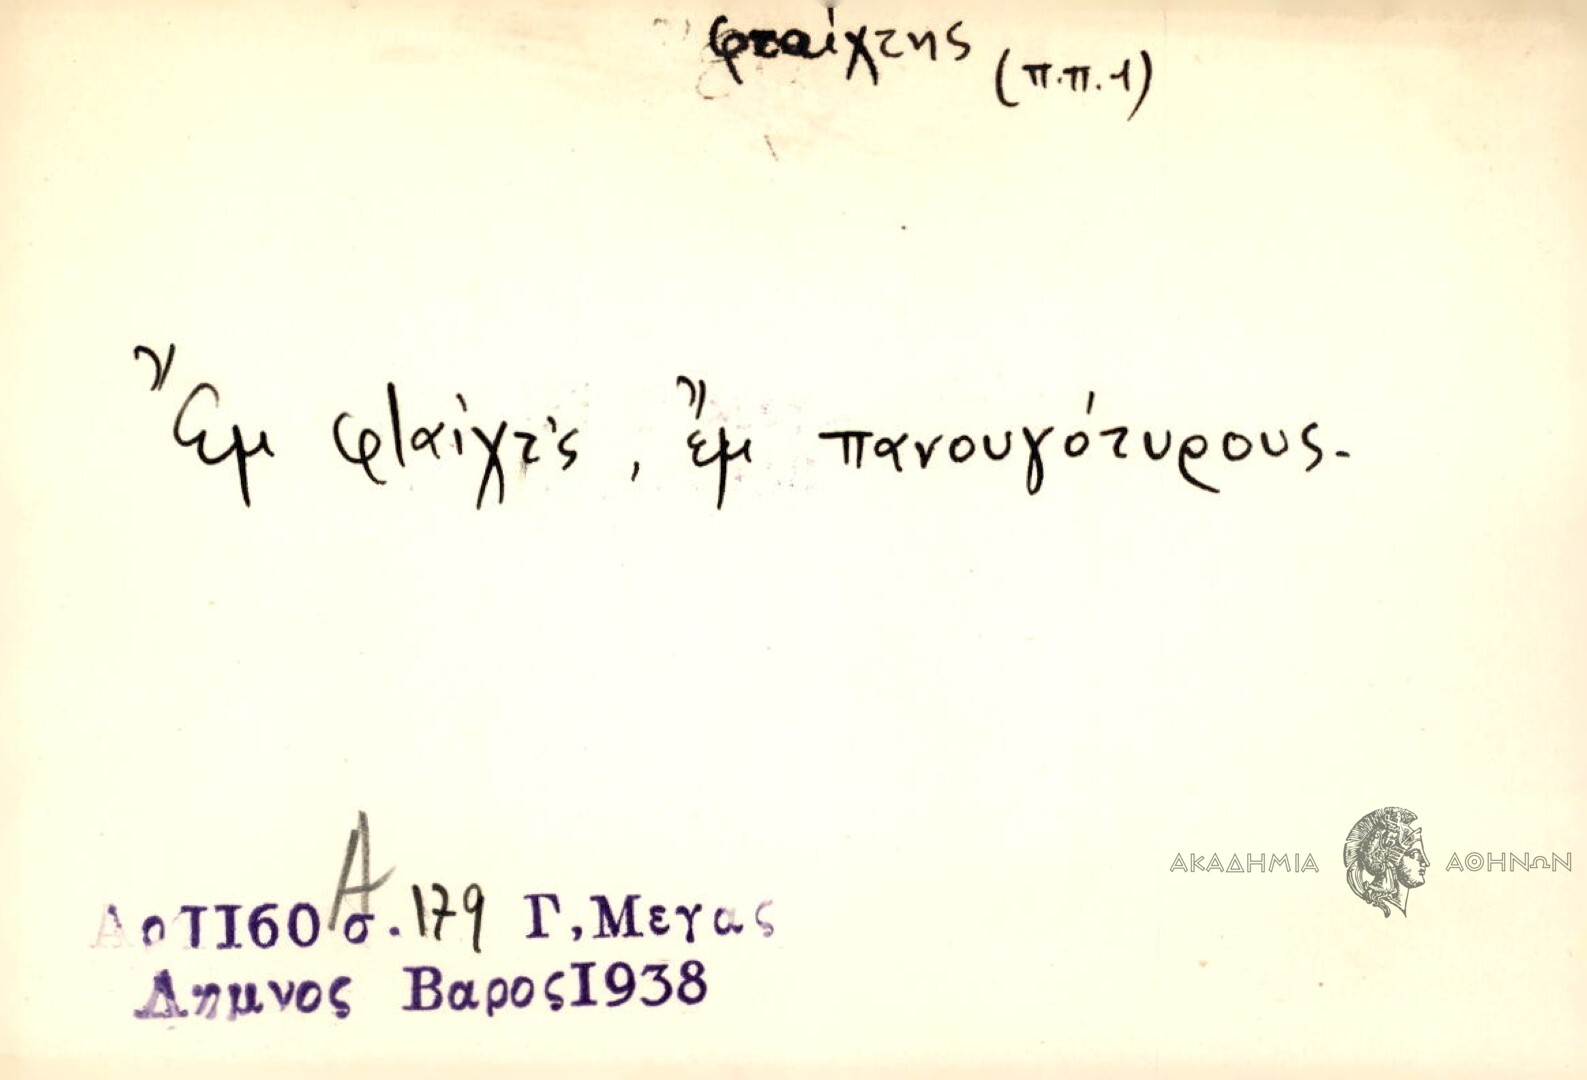 φταίχτης (π.π.1)
Ἔμ φταίχτ'ς, ἔμ πανουγότυρους.
Αρ II60 Α σ. 179 Γ,Μεγας
Λημνος Βαρος I938
ΑΚΑΔΗΜΙΑ ΑΘΗΝΩΝ